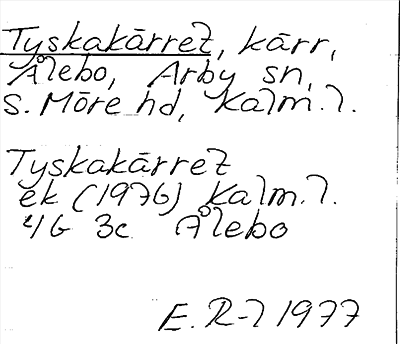 Tyskakärret, kärr,
Ålebo, Arby sn,
S. Möre hd, Kalm.l.
Tyskakärret
ek (1976) Kalm.l.
4G 3c Ålebo
E. R-l 1977